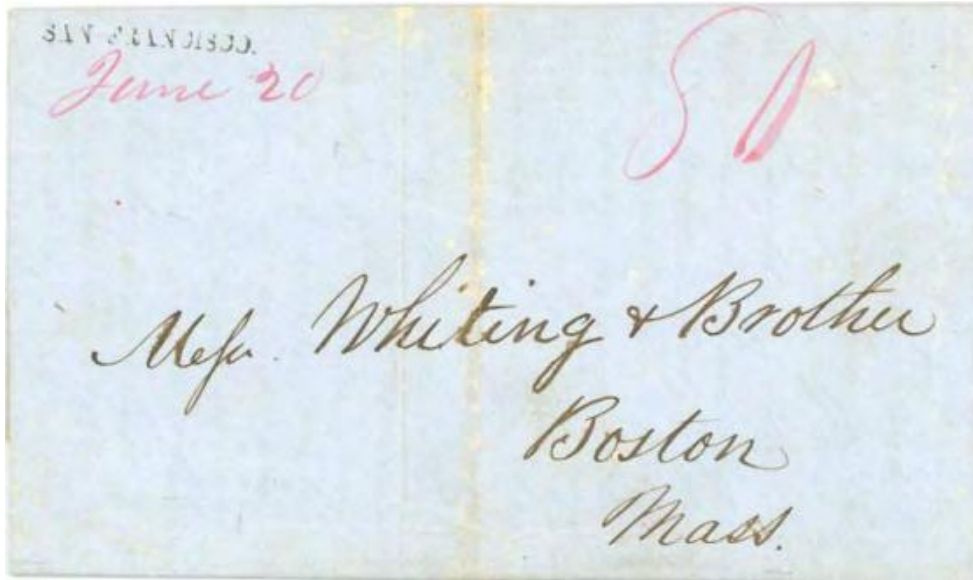 SAN FRANCISCO.
June 20
80
Messr. Whiting & Brother
Boston
Mass.